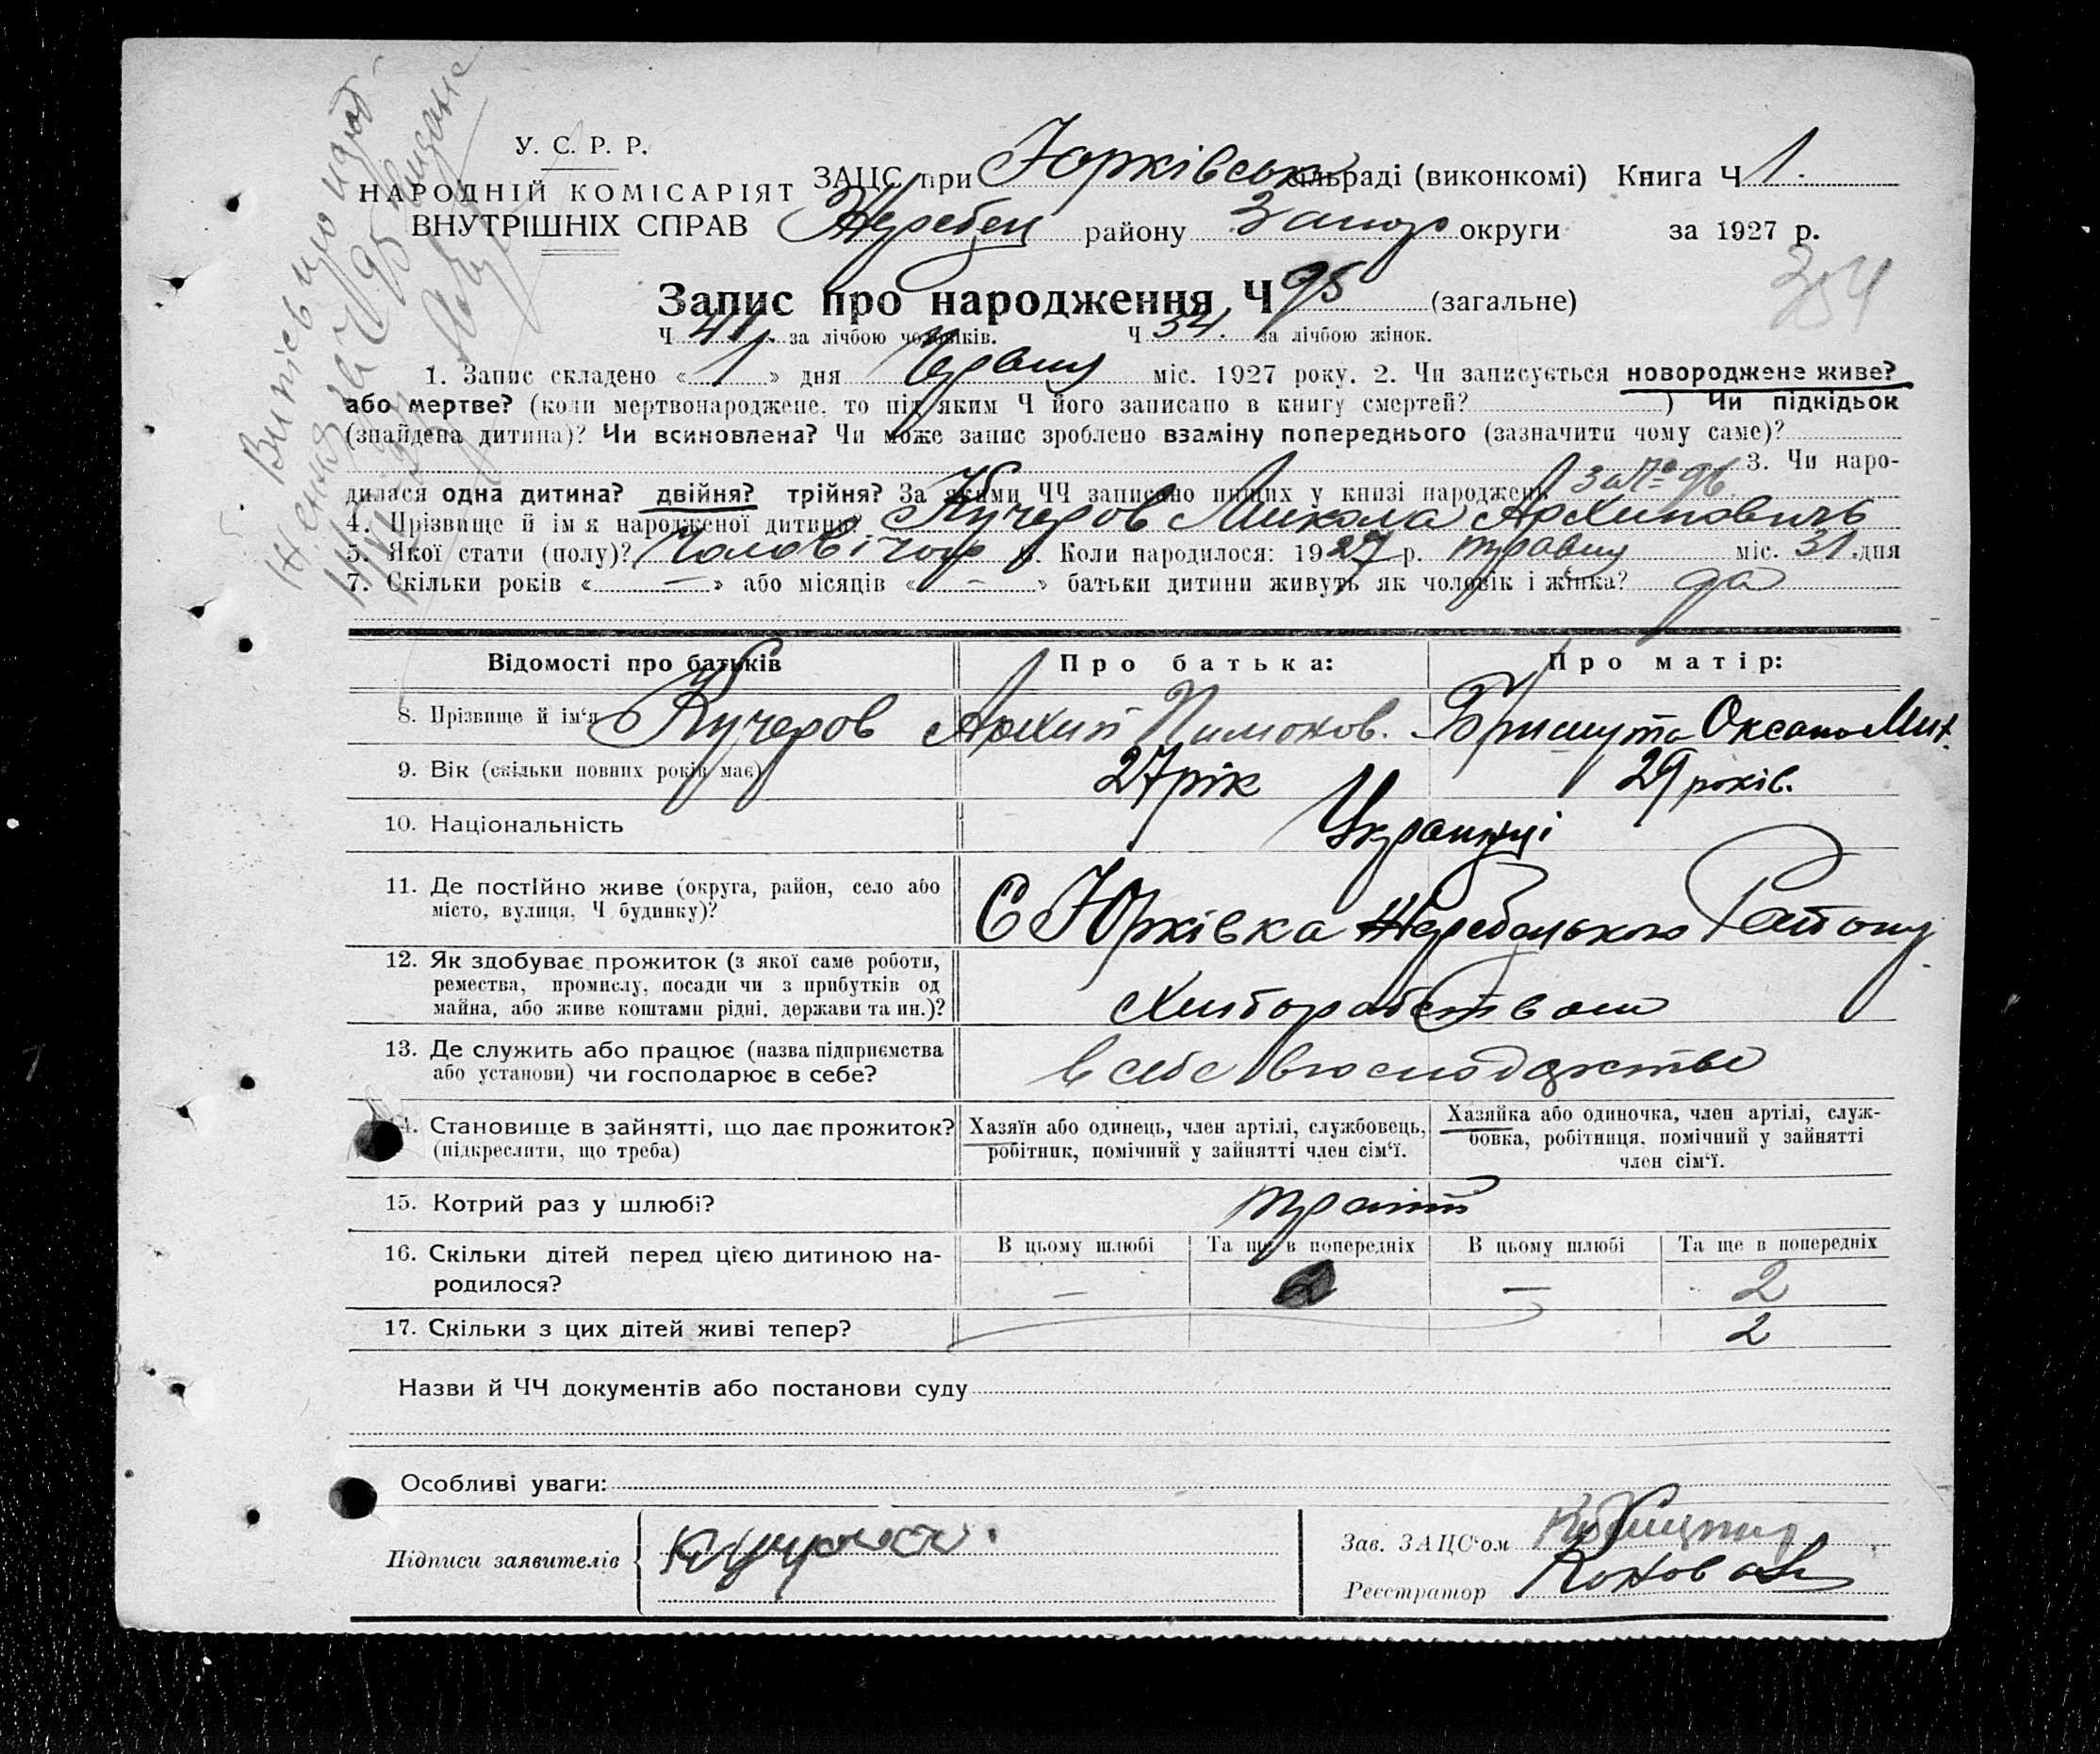 У. С. Р. Р.
НАРОДНІЙ КОМІСАРІЯТ
ВНУТРІШНІХ СПРАВ
ЗАЦС при Юрківськ сільраді (виконкомі) Книга Ч 1.
Жеребец району Запор округи за 1927 р.
354
Запис про народження Ч 95 (загальне)
Ч 41. за лічбою чоловіків. Ч 54. за лічбою жінок.
1. Запис складено « 1 » дня Червня міс. 1927 року. 2. Чи записується новороджене живе?
або мертве? (коли мертвонароджене, то під яким Ч його записано в книгу смертей? ) Чи підкідьок
(знайдена дитина)? Чи всиновлена? Чи може запис зроблено взаміну попереднього (зазначити чому саме)?
3. Чи наро-
дилася одна дитина? двійня? трійня? За якими ЧЧ записано инших у книзі народжень за № 96.
4. Прізвище й ім'я народженої дитини? Кучеров Микола Архипович
5. Якої стати (полу)? Чоловічого 6. Коли народилося: 1927 р. травня міс. 31 дня
7. Скільки років « — » або місяців « — » батьки дитини живуть як чоловік і жінка? да
Відомості про батьків Про батька: Про матір:
8. Прізвище й ім'я Кучеров Архип Пимонов. Оксана Мит.
9. Вік (скільки повних років має) 27 рік 29 років.
10. Національність Українці
11. Де постійно живе (округа, район, село або
місто, вулиця, Ч будинку)?
С Юрківка Жеребецького Району
12. Як здобуває прожиток (з якої саме роботи,
ремества, промислу, посади чи з прибутків од
майна, або живе коштами рідні, держави та ин.)?
Хліборобством
13. Де служить або працює (назва підприємства
або установи) чи господарює в себе?
в себе в господарстве
14. Становище в зайнятті, що дає прожиток?
(підкреслити, що треба)
Хазяїн або одинець, член артілі, службовець,
робітник, помічний у зайнятті член сім'ї.
Хазяйка або одиночка, член артілі, служ-
бовка, робітниця, помічний у зайнятті
член сім'ї.
15. Котрий раз у шлюбі?
16. Скільки дітей перед цією дитиною на-
родилося?
В цьому шлюбі Та ще в попередніх В цьому шлюбі Та ще в попередніх
— — 2
17. Скільки з цих дітей живі тепер? 2
Назви й ЧЧ документів або постанови суду
Особливі уваги:
Підписи заявителів
Зав. ЗАЦС'ом
Реєстратор